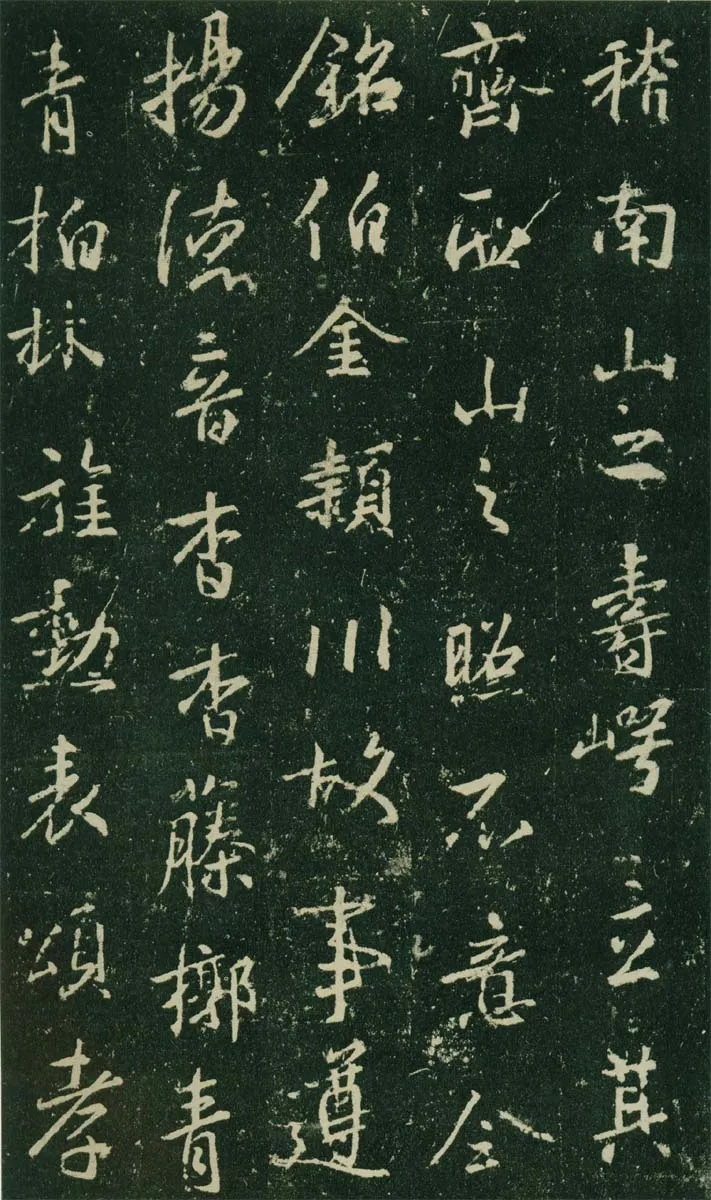 稽南山之壽崿立其
齊西山之照不意今
銘伯金穎川故事遵
揚德音杳杳藤槨青
青柏林旌勳表頌孝